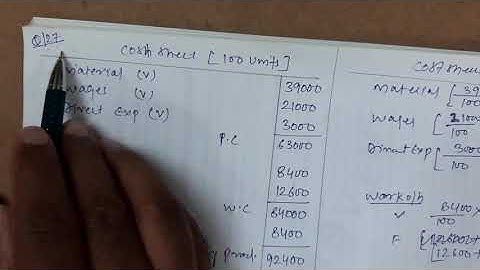 Q/27
Cost Sheet [100 Units]
Material (V) 39000
Wages (V) 21000
Direct Exp (V) 3000
P.C 63000
8400
12600
W.C 84000
8400
92400
Cost Shee
Material [39
100
Wages [
100
Direct Exp [3000
100
Work o/h
V 8400
100
F [12600